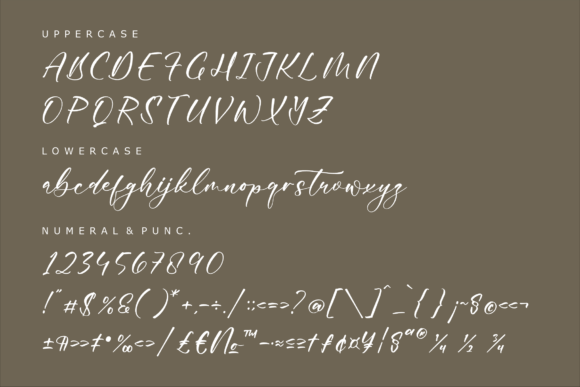 UPPERCASE
ABCDEFGHIJKLMN
OPQRSTUVWXYZ
LOWERCASE
abcdefghijklmnopqrstuvwxyz
NUMERAL & PUNC.
1234567890
!"#$%&()*+,-÷./:;<=>?@[\]^_`{}¡~§©«¬
±¶»>‡•‰<>/£€№™–·≈≤≥†ƒ¢¤¥¦§ªº®¼ ½ ¾